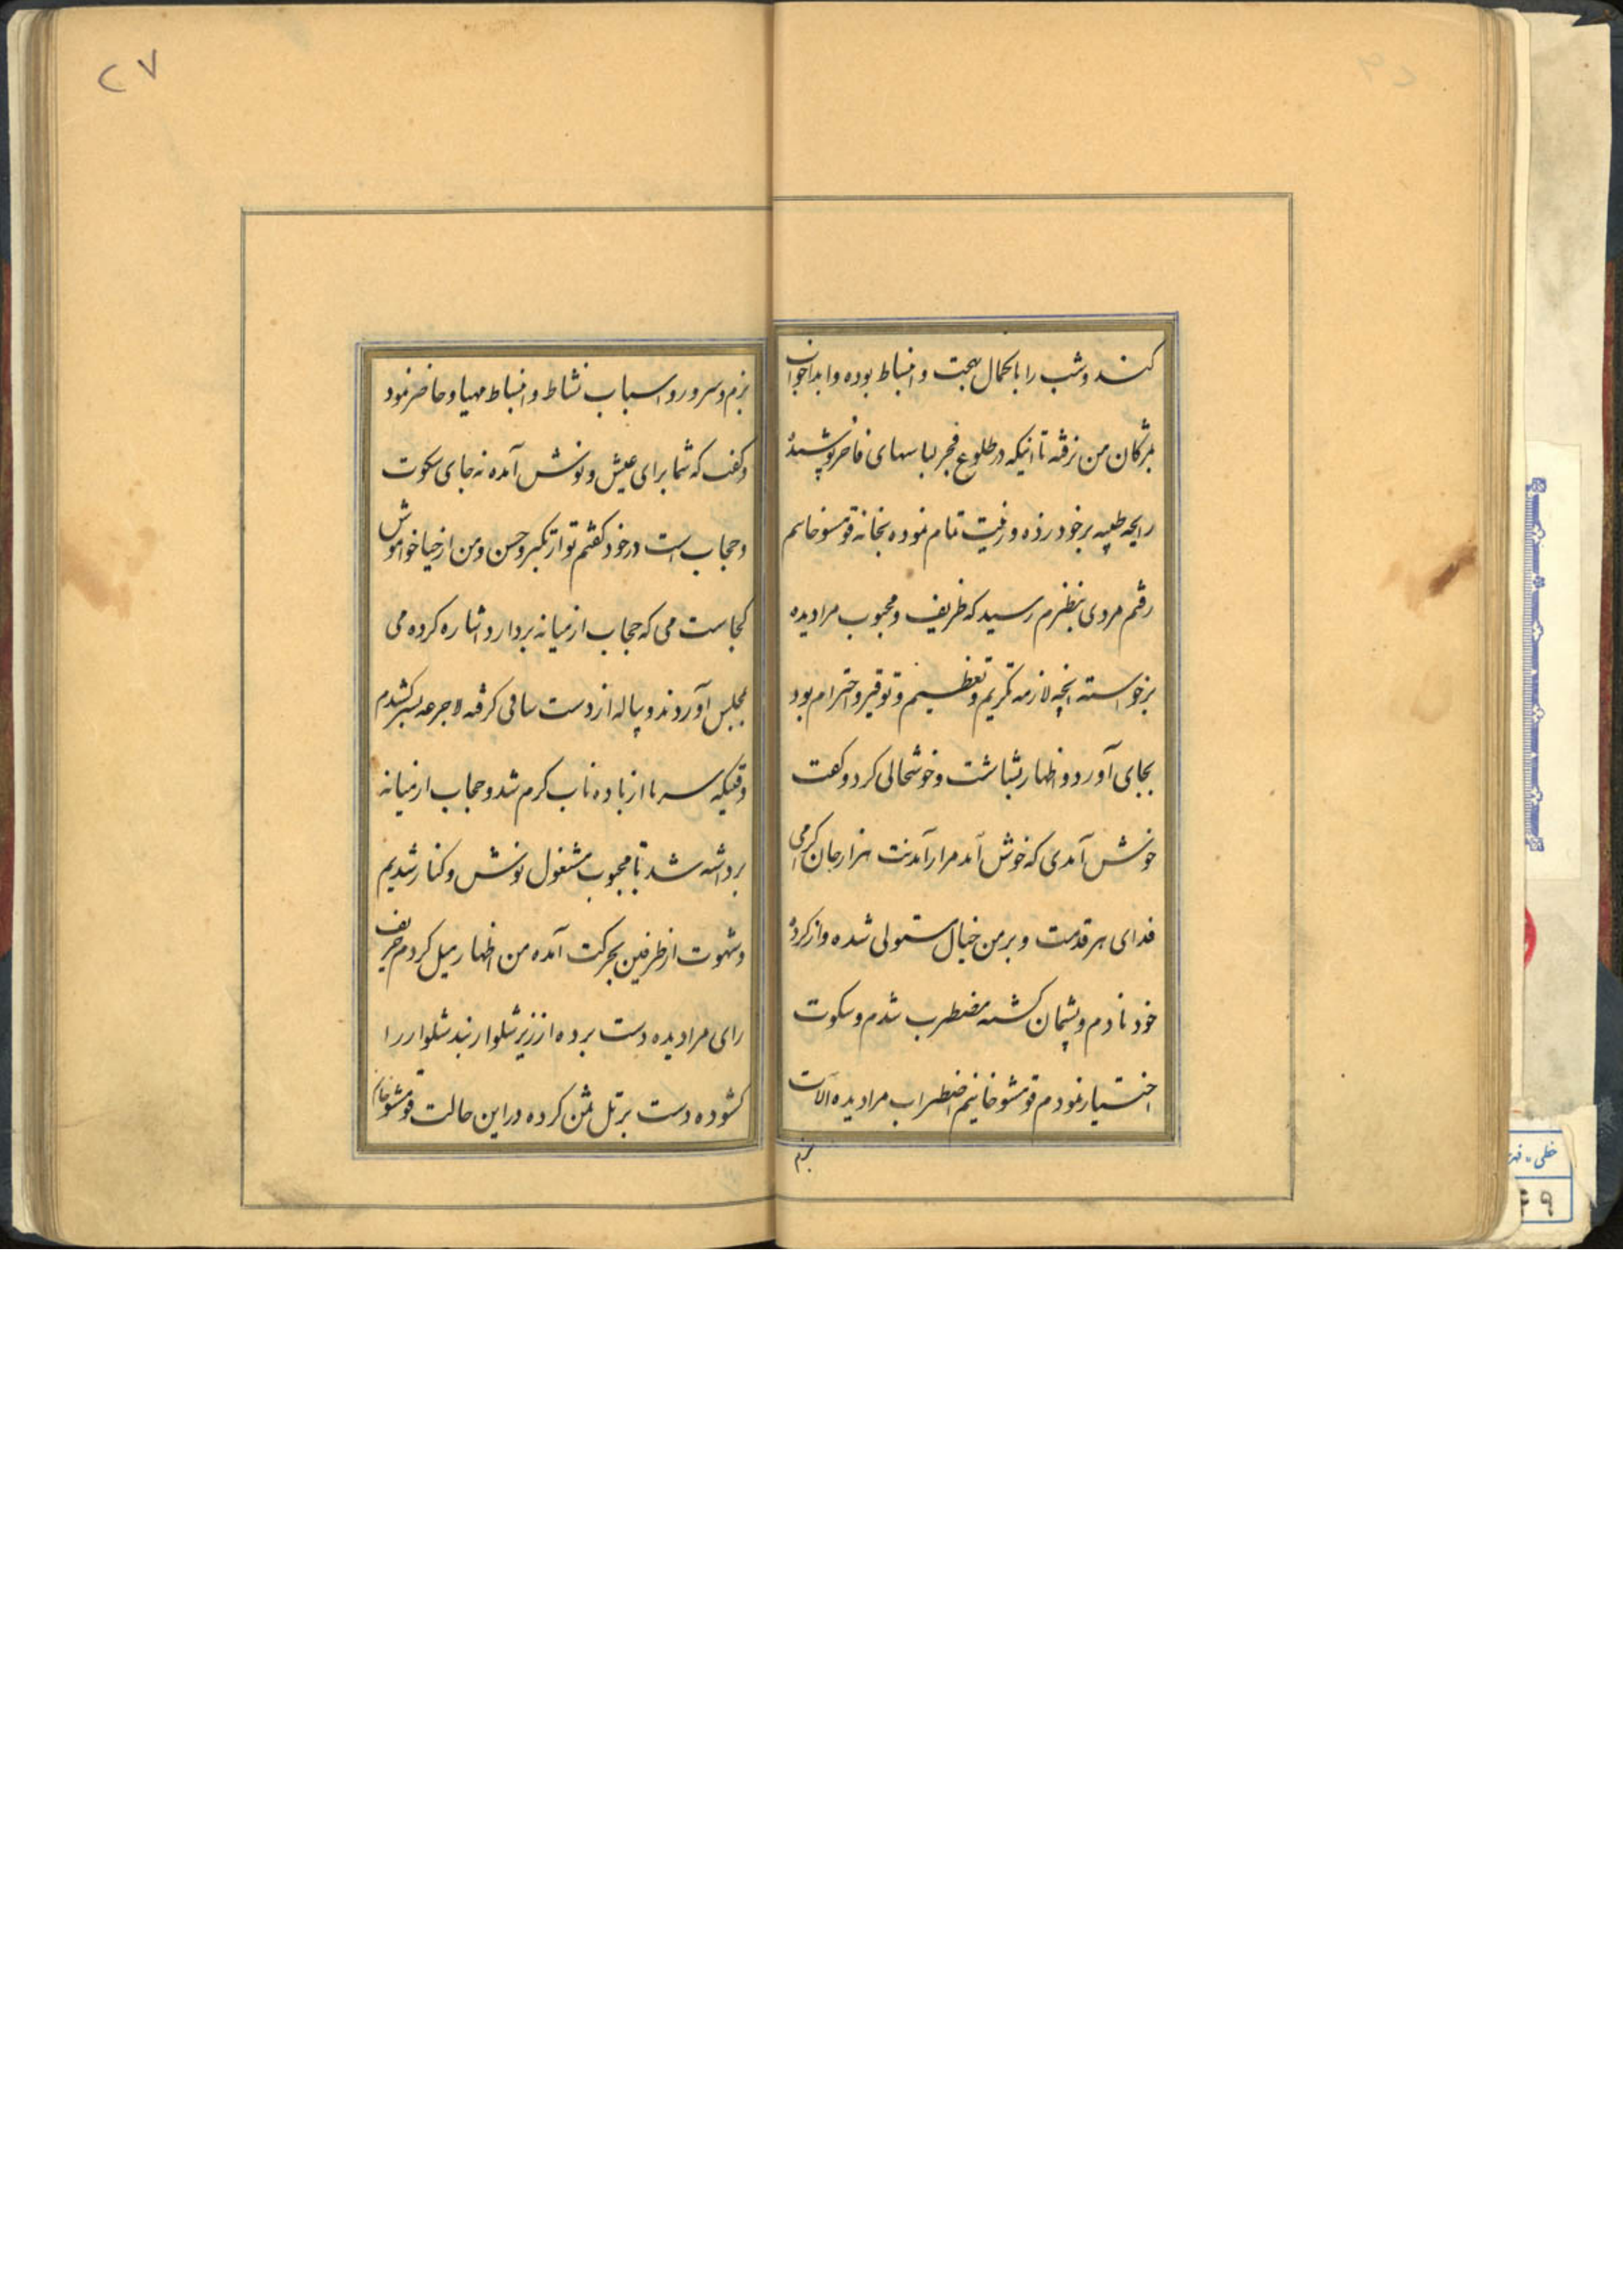 کنند و شب را با کمال بهجت و انبساط بوده و ابدا خواب
بمژگان من نرفته تا اینکه در طلوع فجر لباسهای فاخر پوشیده
رایحه طیبه برخود زده و زینت تمام نموده بخانه قومشو خانم
رفتم مردی بنظرم رسید که ظریف و محبوب مرا دیده
برخواسته انچه لازمه تکریم و تعظیم و توقیر و احترام بود
بجای آورد و اظهار بشاشت و خوشحالی کرد و گفت
خوش آمدی که خوش آمد مرا ز آمدنت هزار جان گرامی
فدای هر قدمت و بر من خیال مستولی شده و از کرده
خود نادم و پشیمان گشته مضطرب شدم و سکوت
اختیار نمودم قومشو خانیم اضطراب مرا دیده آلات
بزم
۲۷
بزم و سرور و اسباب نشاط و انبساط مهیا و حاضر نمود
و گفت که شما برای عیش و نوش آمده نه جای سکوت
و حجاب است در خود گفتم تو از تکبر و حسن و من از حیا خواموش
کجاست می که حجاب از میانه بردارد اشاره کرده می
بمجلس آوردند و پیاله از دست ساقی گرفته لاجرعه بسر کشیدم
وقتیکه سر ما از باده ناب گرم شد و حجاب از میانه
برداشته شد با محبوب مشغول نوش و کنار شدیم
و شهوت از طرفین بحرکت آمده من اظهار میل کردم حریف
رای مرا دیده دست برده از زیر شلوار بند شلوار را
کشوده دست بر تل من کرده در این حالت قومشو خانم
خطی - فهر
۴۹